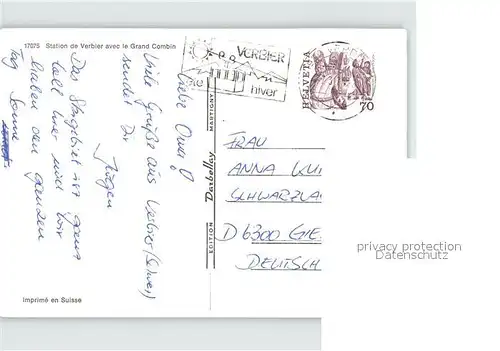 17075 Station de Verbier avec le Grand Combin
Liebe Oma!
Viele Grüße aus Verbier (Schweiz)
sendet Dir
Jürgen
Das Skigebiet ist ganz
toll hier und wir
haben den ganzen
Tag Sonne
Imprimé en Suisse
EDITION Darbellay MARTIGNY
VERBIER
hiver
HELVETIA
70
FRAU
ANNA
D 6300 GIE
DEUTSCH
privacy protection
Datenschutz